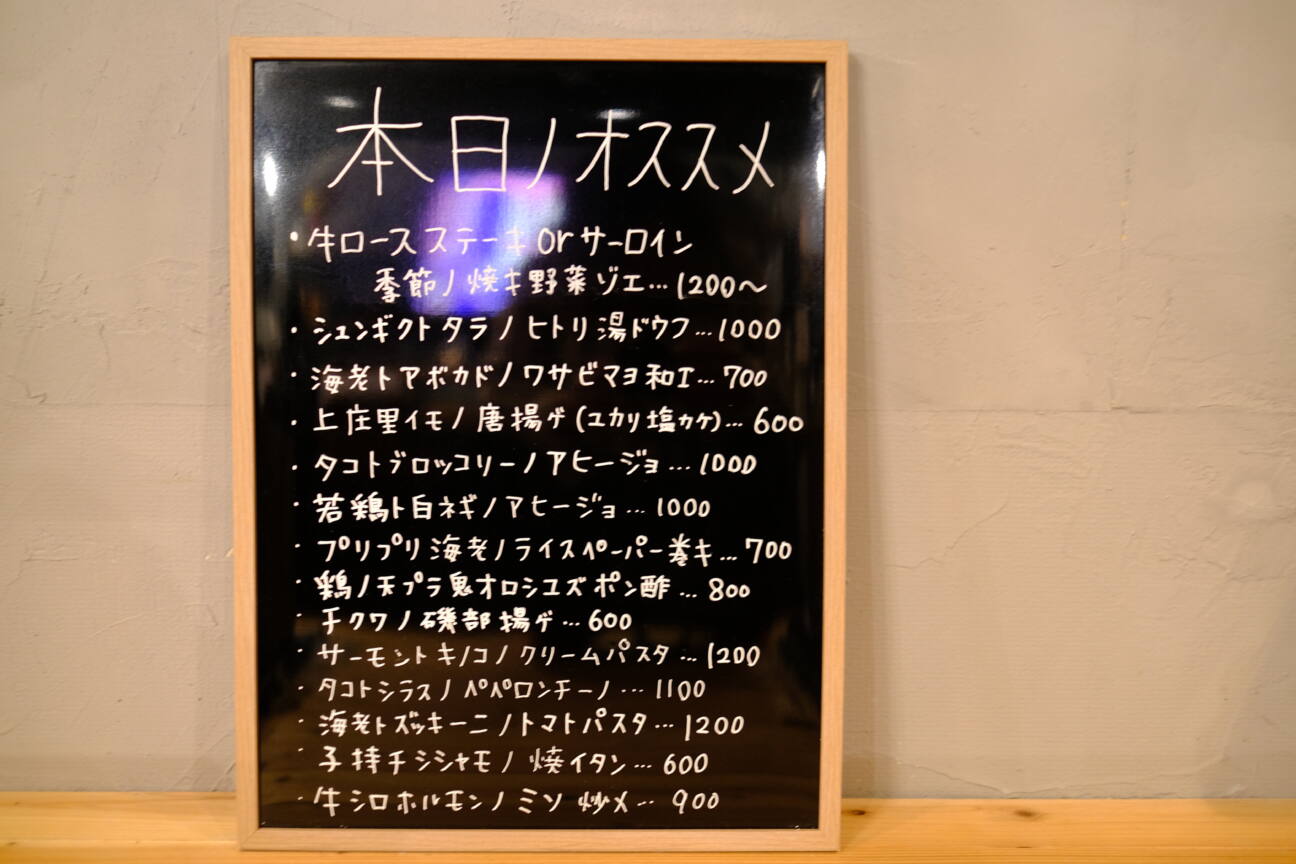 本日ノオススメ
・牛ロースステーキorサーロイン
季節ノ焼キ野菜ゾエ…1200〜
・シュンギクトタラノヒトリ湯ドウフ…1000
・海老トアボカドノワサビマヨ和エ…700
・上庄里イモノ唐揚ゲ(ユカリ塩カケ)…600
・タコトブロッコリーノアヒージョ…1000
・若鶏ト白ネギノアヒージョ…1000
・プリプリ海老ノライスペーパー巻キ…700
・鶏ノ天プラ鬼オロシユズポン酢…800
・チクワノ磯部揚ゲ…600
・サーモントキノコノクリームパスタ…1200
・タコトシラスノペペロンチーノ…1100
・海老トズッキーニノトマトパスタ…1200
・子持チシシャモノ焼イタン…600
・牛シロホルモンノミソ炒メ…900